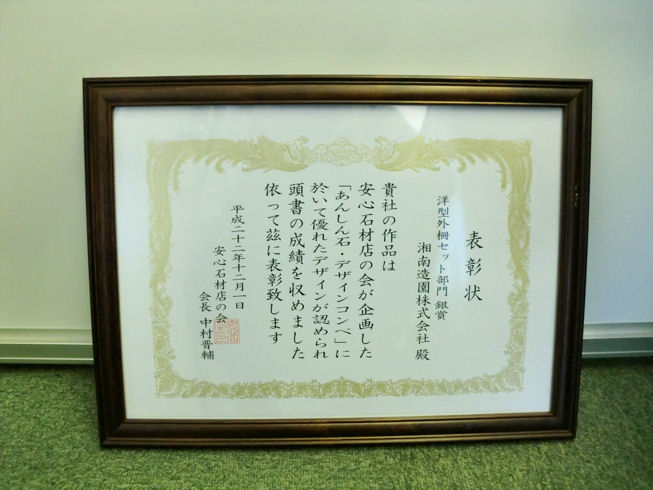 表彰状
洋型外柵セット部門 銀賞
湘南造園株式会社 殿
貴社の作品は
安心石材店の会が企画した
「あんしん石・デザインコンペ」に
於いて優れたデザインが認められ
頭書の成績を収めました
依って茲に表彰致します
平成二十二年十二月一日
安心石材店の会
会長 中村晋輔